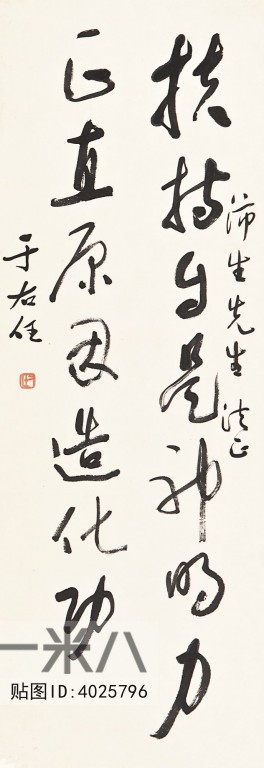 扶持自是神明力
沛生先生法正
正直原因造化功
于右任
一米八
贴图ID:4025796